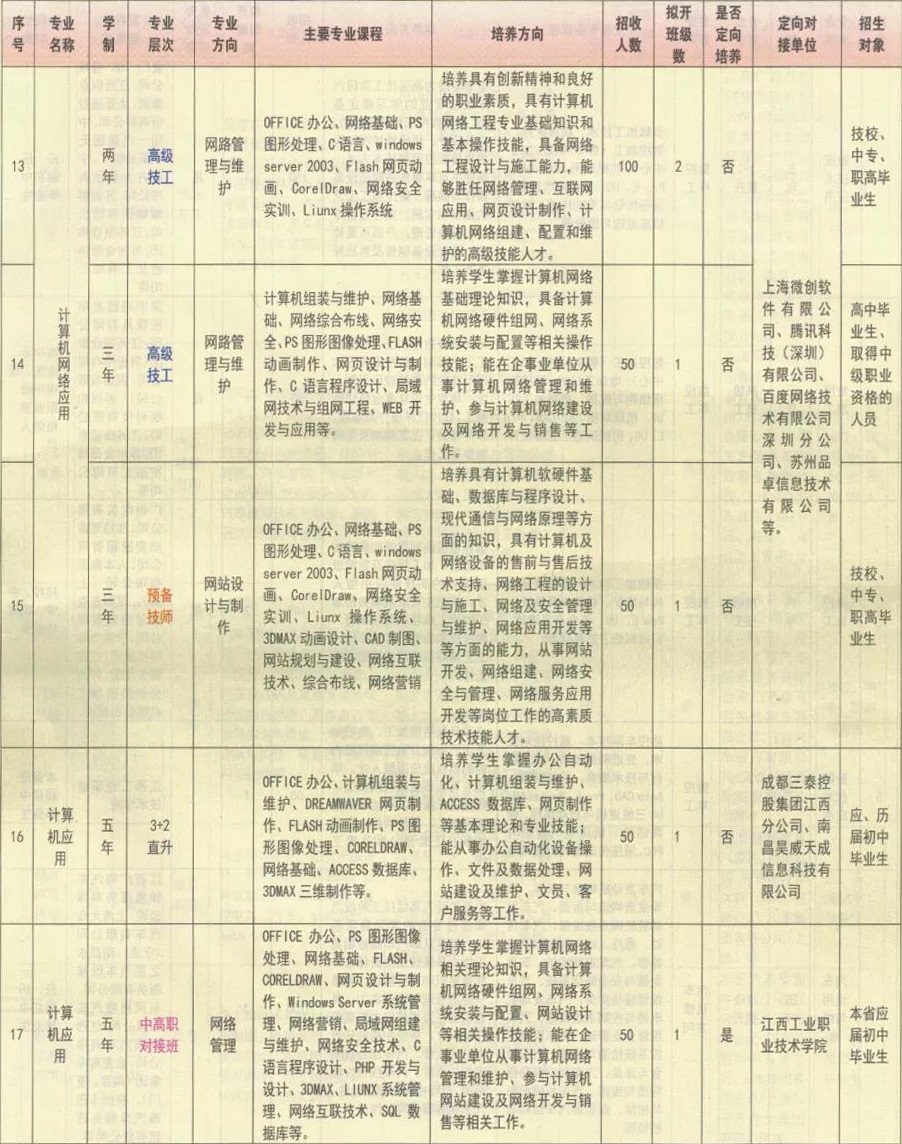 序号
专业名称
学制
专业层次
专业方向
主要专业课程
培养方向
招收人数
拟开班级数
是否定向培养
定向对接单位
招生对象
13
两年
高级
技工
网路管
理与维
护
OFFICE 办公、网络基础、PS
图形处理、C 语言、windows
server 2003、Flash 网页动
画、CorelDraw、网络安全
实训、Liunx 操作系统
培养具有创新精神和良好
的职业素质，具有计算机
网络工程专业基础知识和
基本操作技能，具备网络
工程设计与施工能力，能
够胜任网络管理、互联网
应用、网页设计制作、计
算机网络组建、配置和维
护的高级技能人才。
100
2
否
技校、
中专、
职高毕
业生
计算机网络应用
14
三年
高级
技工
网路管
理与维
护
计算机组装与维护、网络基
础、网络综合布线、网络安
全、PS 图形图像处理、FLASH
动画制作、网页设计与制
作、C 语言程序设计、局域
网技术与组网工程、WEB 开
发与应用等。
培养学生掌握计算机网络
基础理论知识，具备计算
机网络硬件组网、网络系
统安装与配置等相关操作
技能；能在企事业单位从
事计算机网络管理和维
护、参与计算机网络建设
及网络开发与销售等工
作。
50
1
否
上海微创软
件有限公
司、腾讯科
技（深圳）
有限公司、
百度网络技
术有限公司
深圳分公
司、苏州品
卓信息技术
有限公司
等。
高中毕
业生、
取得中
级职业
资格的
人员
15
三年
预备
技师
网站设
计与制
作
OFFICE 办公、网络基础、PS
图形处理、C 语言、windows
server 2003、Flash 网页动
画、CorelDraw、网络安全
实训、Liunx 操作系统、
3DMAX 动画设计、CAD 制图、
网站规划与建设、网络互联
技术、综合布线、网络营销
培养具有计算机软硬件基
础、数据库与程序设计、
现代通信与网络原理等方
面的知识，具有计算机及
网络设备的售前与售后技
术支持、网络工程的设计
与施工、网络及安全管理
与维护、网络应用开发等
等方面的能力，从事网站
开发、网络组建、网络安
全与管理、网络服务应用
开发等岗位工作的高素质
技术技能人才。
50
1
否
技校、
中专、
职高毕
业生
16
计算
机应
用
五年
3+2
直升
OFFICE 办公、计算机组装与
维护、DREAMWAVER 网页制
作、FLASH 动画制作、PS 图
形图像处理、CORELDRAW、
网络基础、ACCESS 数据库、
3DMAX 三维制作等。
培养学生掌握办公自动
化、计算机组装与维护、
ACCESS 数据库、网页制作
等基本理论和专业技能；
能从事办公自动化设备操
作、文件及数据处理、网
站建设及维护、文员、客
户服务等工作。
50
1
否
成都三泰控
股集团江西
分公司、南
昌昊威天成
信息科技有
限公司
应、历
届初中
毕业生
17
计算
机应
用
五年
中高职
对接班
网络
管理
OFFICE 办公、PS 图形图像
处理、网络基础、FLASH、
CORELDRAW、网页设计与制
作、Windows Server 系统管
理、网络营销、局域网组建
与维护、网络安全技术、C
语言程序设计、PHP 开发与
设计、3DMAX、LIUNX 系统管
理、网络互联技术、SQL 数
据库等。
培养学生掌握计算机网络
相关理论知识，具备计算
机网络硬件组网、网络系
统安装与配置、网站设计
等相关操作技能；能在企
事业单位从事计算机网络
管理和维护、参与计算机
网站建设及网络开发与销
售等相关工作。
50
1
是
江西工业职
业技术学院
本省应
届初中
毕业生